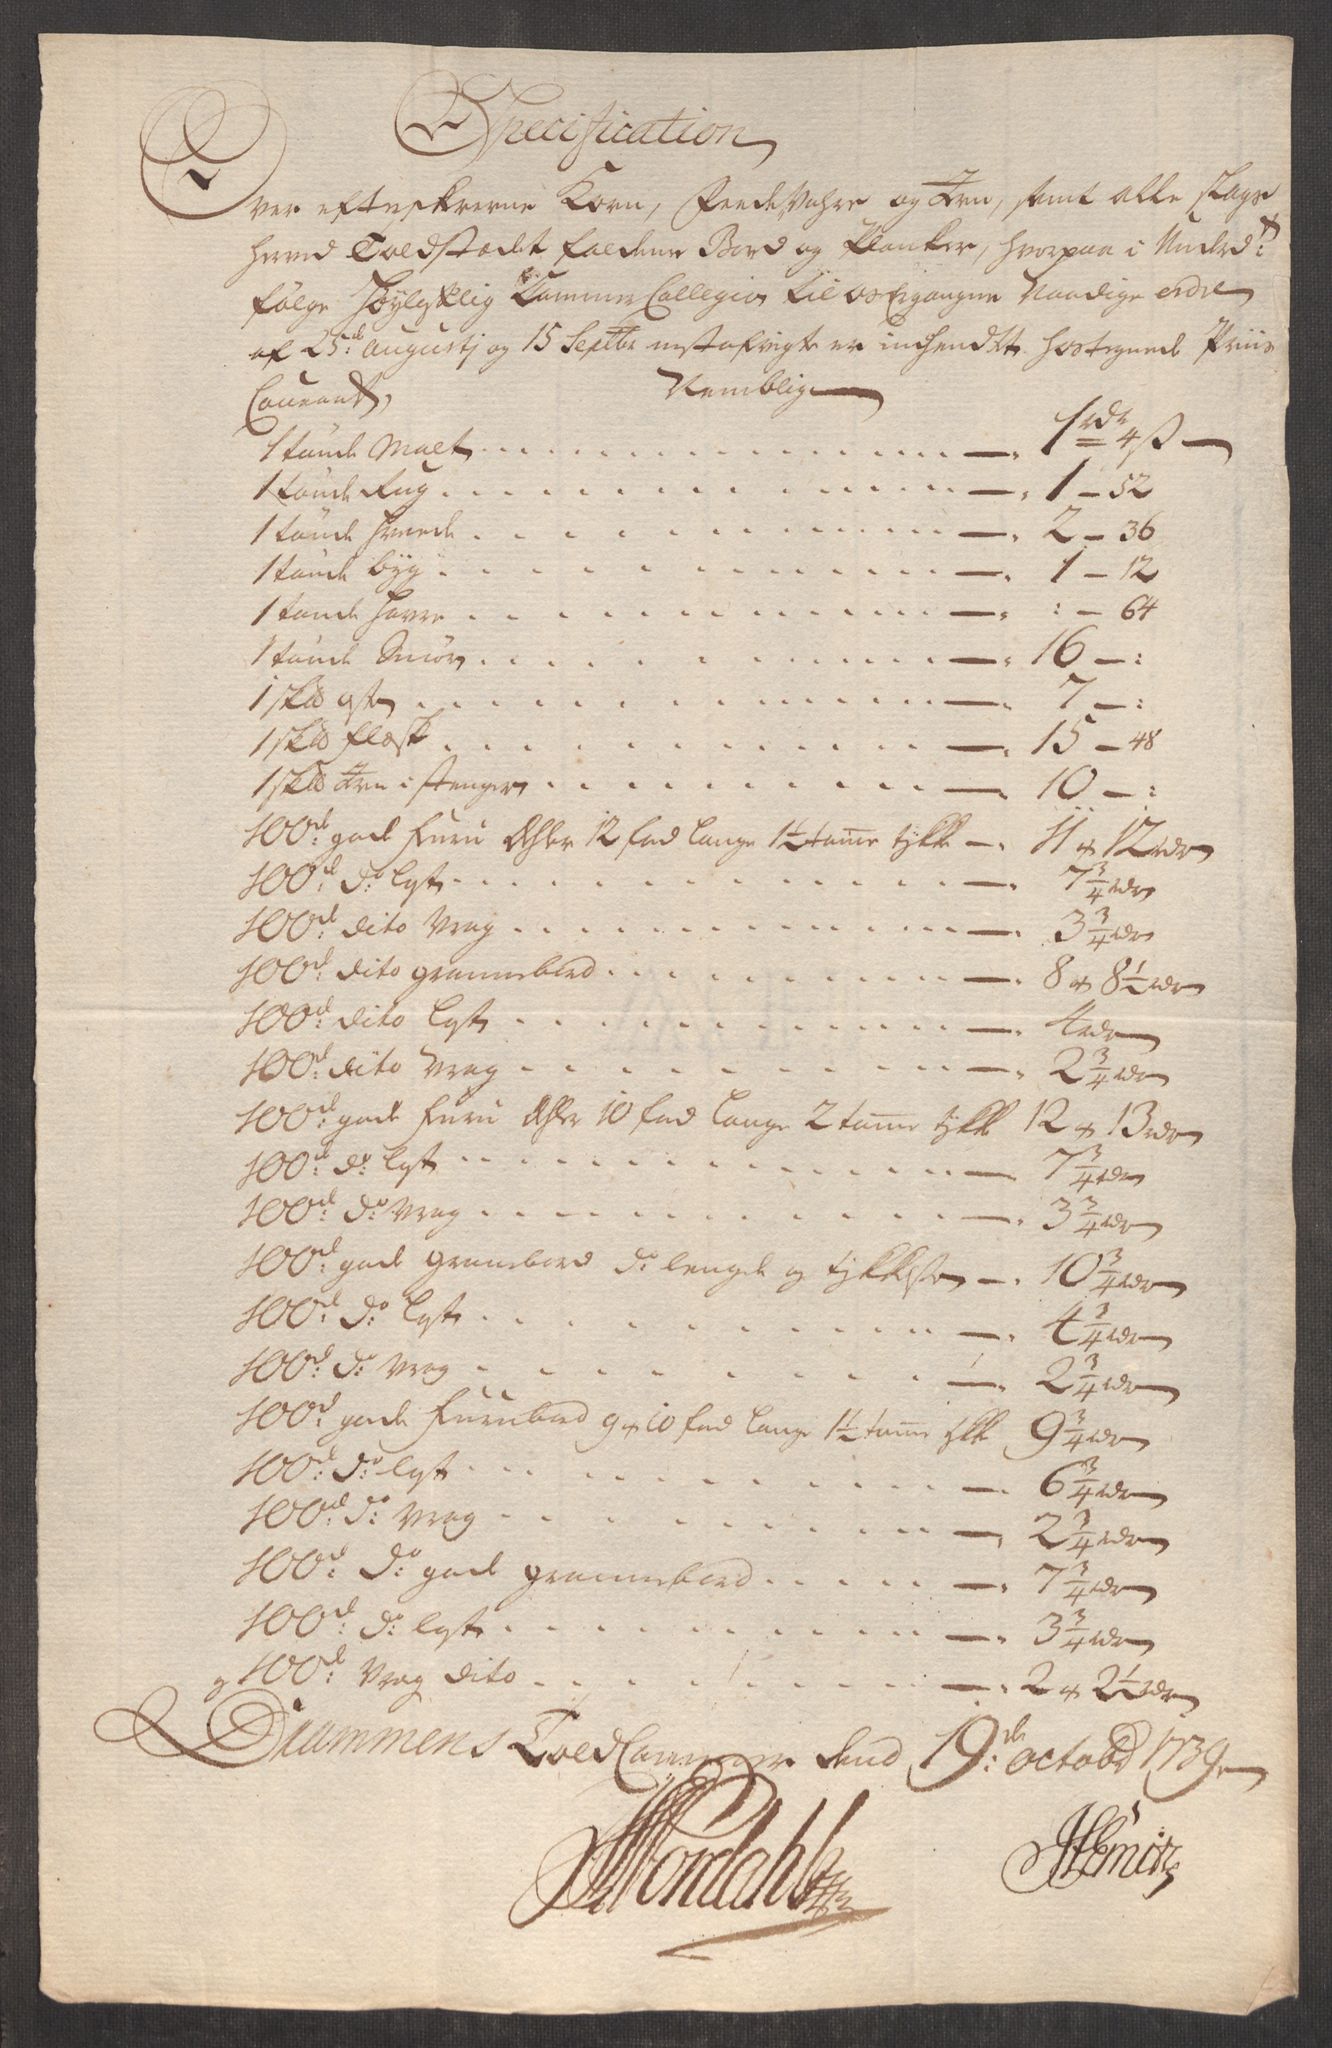 Specification
Over efterskrevne Korn, Feede Vahre og Jern, samt alle slags
herved Toldstædet faldene Bord og Planker, hvorpaa i Underd:
følge Høylovlig Cammer Collegio til os Ergangne Naadige ordre
af 25de Augustj og 15 Septbr nestafvigte er indsendt hostegnede Priis
Courant, Nemblig
1 tønde Malt 1 rdr 4 ß
1 tønde Rug 1 - 52
1 tønde Hvede 2 - 36
1 tønde Byg 1 - 12
1 tønde Havre : - 64
1 tønde Smør 16 - :
1 sk℔ ost 7 - :
1 sk℔ Flesk 15 - 48
1 sk℔ Jern i stenger 10 - :
100de gode Furu Dehler 12 fod lange 1½ tomme tykke 11 a 12 rdr
100de do lest 7¾ rdr
100de dito Vrag 3¾ rdr
100de dito grannebord 8 a 8½ rdr
100de dito lest 4 rdr
100de dito Vrag 2¾ rdr
100de gode Furu Dehler 10 fod lange 2 tomme tykk 12 a 13 rdr
100de do lest 7¾ rdr
100de do Vrag 3¾ rdr
100de gode granebord do lengde og tykkelse 10¾ rdr
100de do lest 4¾ rdr
100de do Vrag 2¾ rdr
100de gode Furubord 9 a 10 fod lange 1½ tomme tykk 9¾ rdr
100de do lest 6¾ rdr
100de do Vrag 2¾ rdr
100de do gode grannebord 7¾ rdr
100de do lest 3¾ rdr
og 100de Vrag dito 2 a 2½ rdr
Drammens Told Cammer dend 19de octobr 1739
Nordahl